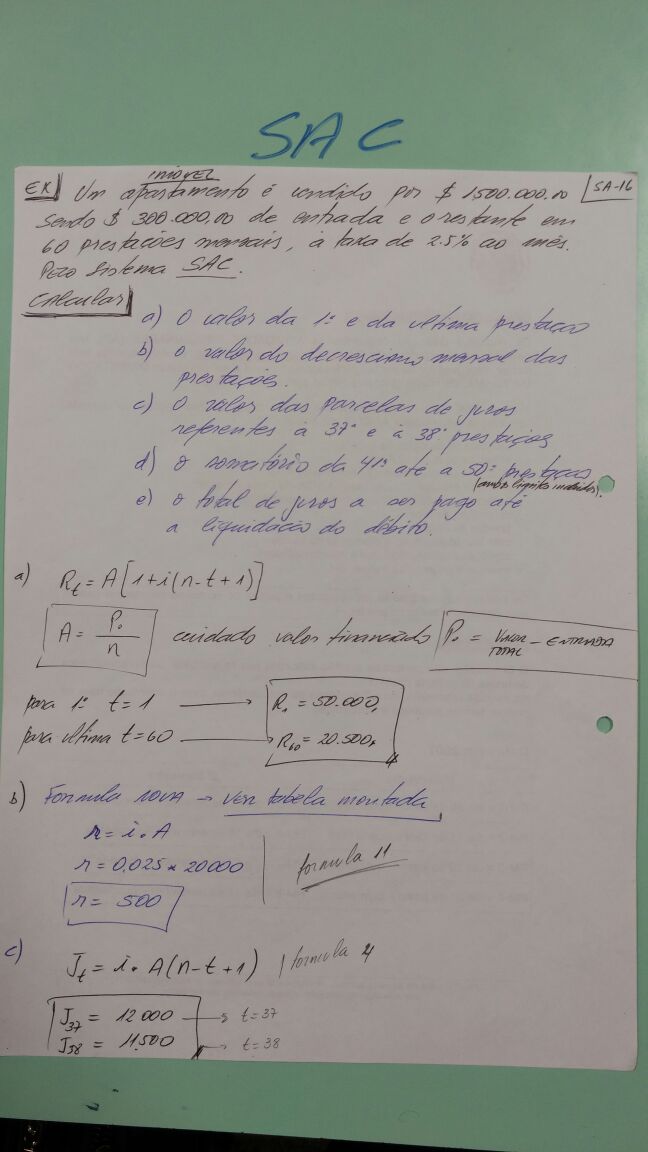 SAC
EX Um apartamento é vendido por $ 1500.000,00
IMÓVEL
SA-16
sendo $ 300.000,00 de entrada e o restante em
60 prestações mensais, a taxa de 2.5% ao mês.
Pelo Sistema SAC.
Calcular
a) O valor da 1ª e da ultima prestação
b) o valor do decrescimo mensal das
prestações.
c) O valor das parcelas de juros
referentes à 37ª e à 38ª prestações
d) o somatório da 41ª até a 50ª prestação
(ambos incluidos).
e) o total de juros a ser pago até
a liquidação do débito.
a) Rt = A[1+i(n-t+1)]
A = P₀/n cuidado valor financiado P₀ = VALOR TOTAL - ENTRADA
para 1ª t = 1 → R₁ = 50.000,
para ultima t = 60 → R₆₀ = 20.500,
b) Formula nova → ver tabela montada
r = i . A
r = 0,025 × 20000 formula 11
r = 500
c) Jt = i . A(n-t+1) formula 4
J37 = 12000 → t=37
J38 = 11.500 → t=38